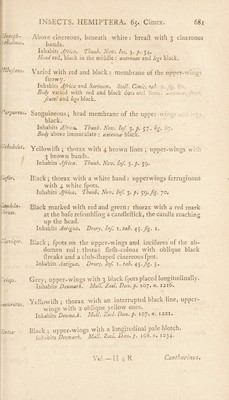 INSECTS. HEMIPTERA. 65. Cimex. 681
Above cinereous, beneath white: breast with 3 cinereous
bands.
Inhabits Africa. Thunb. Nov. Ins. 3. p. 54.
Head red, black in the middle: antennæ and legs black.
Varied with red and black: membrane of the upper-wings
snowy.
Inhabits Africa and Surinam. Stoll. Cimic.
Body varied with red and black
and legs black.
Sanguineous; head membrane of the upper-wings and legs
black.
Inhabits Africa. Thunb. Nov. Inf. 3. p. 57. fig.
Body above immaculate: antennæ black.
Yellowish; thorax with 4 brown lines; upper-wings with
3 brown bands.
Inhabits Africa. Thunb. Nov. Inf. 3. p. 59.
Black; thorax with a white band: upperwings ferruginous
with 4 white spots.
Inhabits Africa. Thunb. Nov. Inf. 3. p. 59. fig. 70.
Black marked with red and green: thorax with a red mark
at the base resembling a candlestick, the candle reaching
up the head.
Inhabits Antigua. Drury. Inf. 1. tab. 45. fig. 1.
Black; spots on the upper-wings and incisures of the ab-
domen red: thorax flesh-colour with oblique black
streaks and a club-shaped cinereous spot.
Inhabits Antigua. Drury. Inf. 1. tab. 45. fig. 5.
Grey; upper-wings with 3 black spots placed longitudinally.
Inhabits Denmark. Mull. Zool. Dan. p. 107. n. 1216.
Yellowish; thorax with an interrupted black line, upper-
wings with 2 oblique yellow ones.
Inhabits Denmark. Mull. Zool. Dan. p. 107. n. 1221.
Black; upper-wings with a longitudinal pale blotch.
Inhabits Denmark. Mull. Zool. Dan. p. 108. n. 1234.
Vol.—II 4 R Cantharinus.